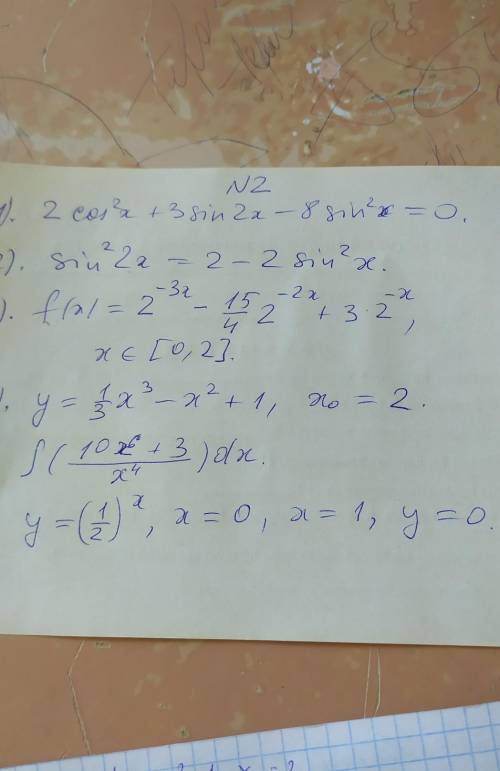 N2
1). 2 cos²x + 3 sin 2x − 8 sin²x = 0.
2). sin²2x = 2 − 2 sin²x.
). f(x) = 2^{-3x} − 15/4 2^{-2x} + 3·2^{-x},
x ∈ [0, 2].
. y = 1/3 x³ − x² + 1, x₀ = 2.
∫ (10x⁶ + 3 / x⁴) dx.
y = (1/2)^x, x = 0, x = 1, y = 0.